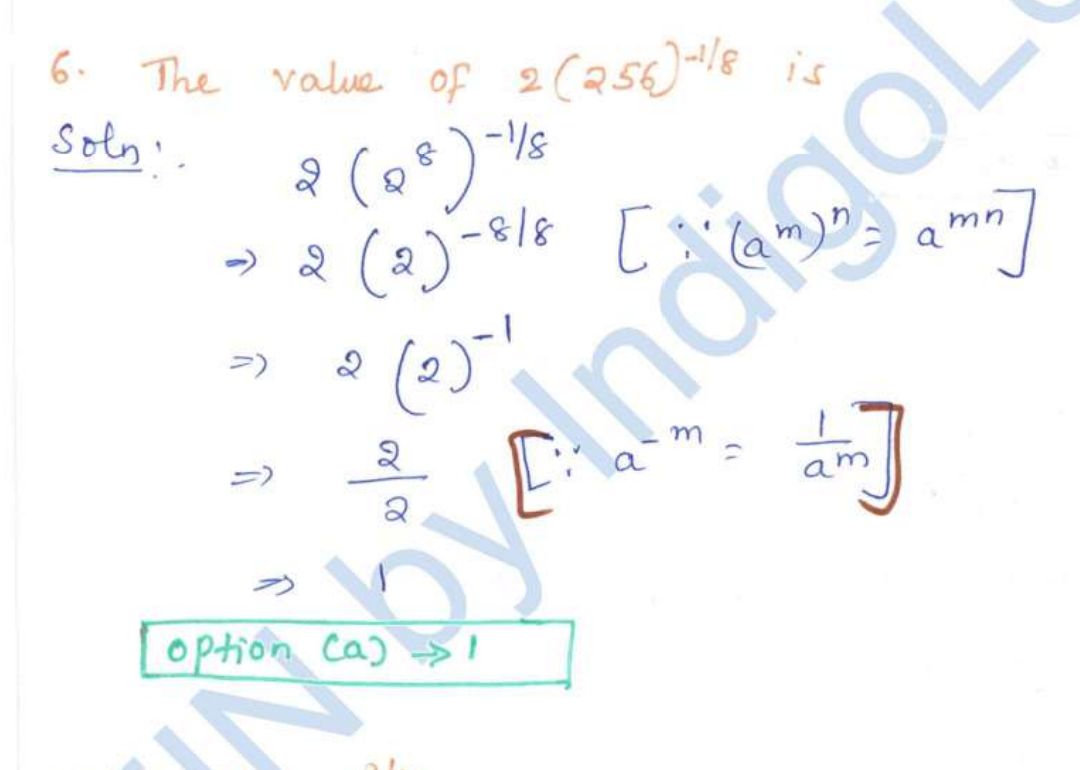 6. The value of 2(256)^-1/8 is
Soln:.
2 (2^8)^-1/8
⇒ 2 (2)^-8/8 [∵ (a^m)^n = a^mn]
⇒ 2 (2)^-1
⇒ 2/2 [∵ a^-m = 1/a^m]
⇒ 1
option (a) → 1
IN by IndigoL